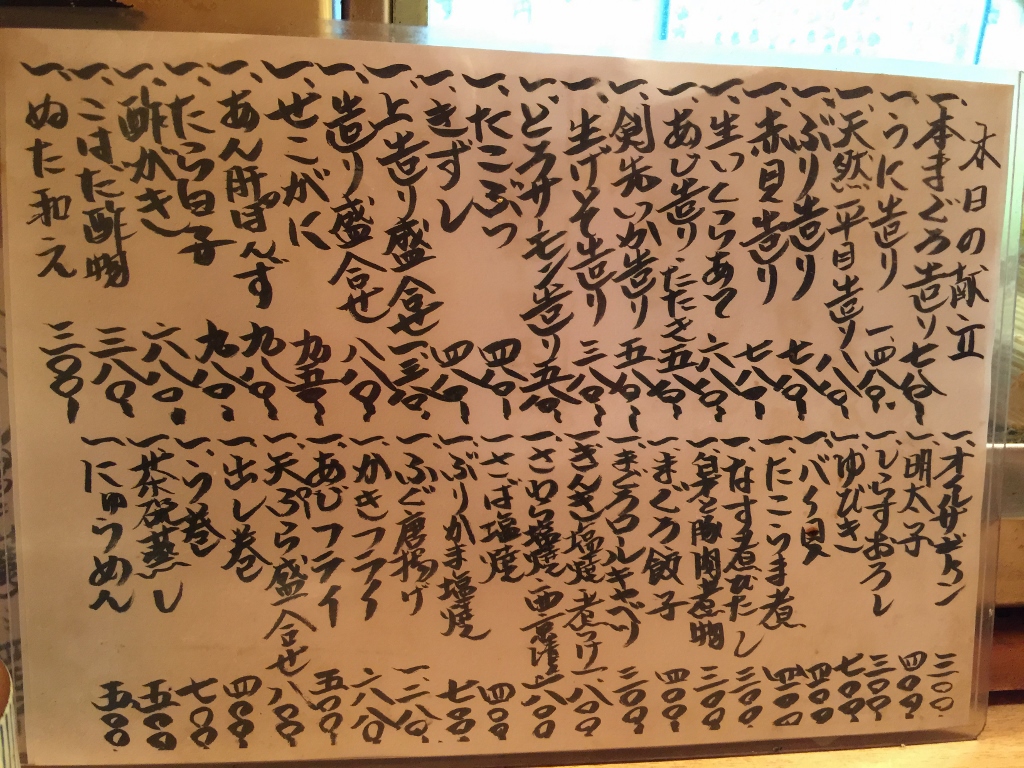 本日の献立
一、本まぐろ造り 七八〇、
一、うに造り 一、四八〇、
一、天然平目造り 八八〇、
一、ぶり造り 七八〇、
一、赤貝造り 七八〇、
一、生いくらあて 六八〇、
一、あじ造り、たたき 五八〇、
一、剣先いか造り 五八〇、
一、生げそ造り 三八〇、
一、どろサーモン造り 五八〇、
一、たこぶつ 四八〇、
一、きずし 四八〇、
一、上造り盛合せ
一、造り盛合せ 八八〇、
一、せこがに 九五〇、
一、あん肝ぽんず 九八〇、
一、たら白子 九八〇、
一、酢かき 六八〇、
一、こはだ酢物 三八〇、
一、ぬた和え 三〇〇、
一、オイルサーディン 三〇〇
一、明太子 四〇〇
一、しらすおろし 三〇〇
一、ゆびき 七〇〇
一、バイ貝 四〇〇
一、たこうま煮 四〇〇
一、なす煮びたし 三〇〇
一、白菜と豚肉煮物 三〇〇
一、まぐろ餃子 四〇〇
一、まぐろロールキャベツ 三〇〇
一、きんき塩焼、煮つけ 一、八〇〇
一、さわら塩焼、西京漬 八〇〇
一、さば塩焼 四〇〇
一、ぶりかま塩焼 七〇〇
一、ふぐ唐揚げ 一、二八〇
一、かきフライ 六八〇
一、あじフライ 五〇〇
一、天ぷら盛合せ 八〇〇
一、出し巻 四〇〇
一、う巻 七〇〇
一、茶碗蒸し 五〇〇
一、にゅうめん 五〇〇